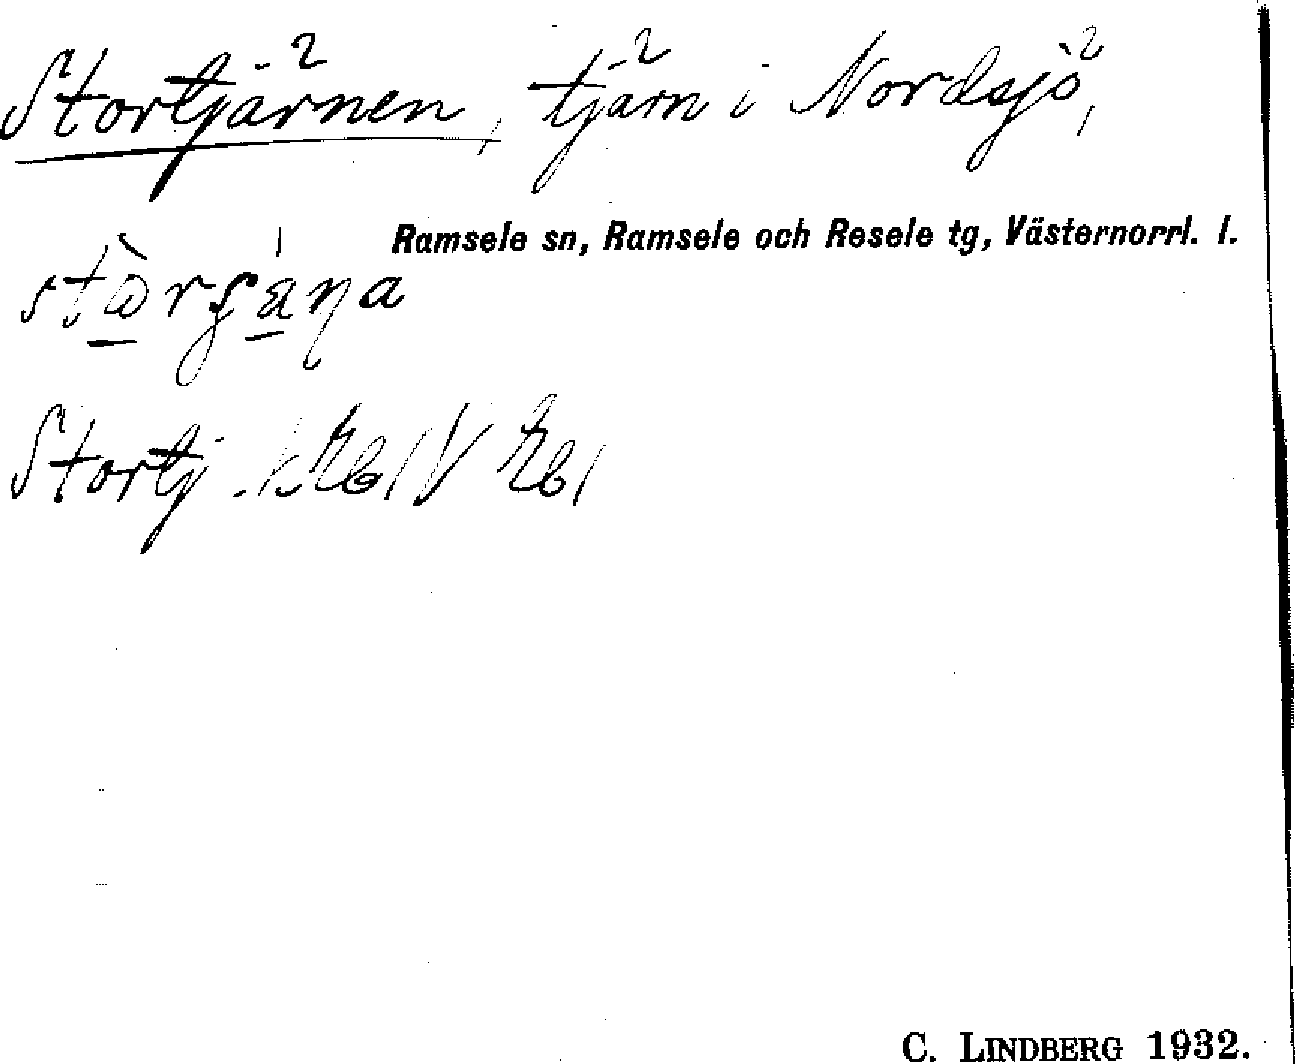 Stortjärnen, tjärn i Nordsjö,
Ramsele sn, Ramsele och Resele tg, Västernorrl. l.
Stortj.
C. LINDBERG 1932.